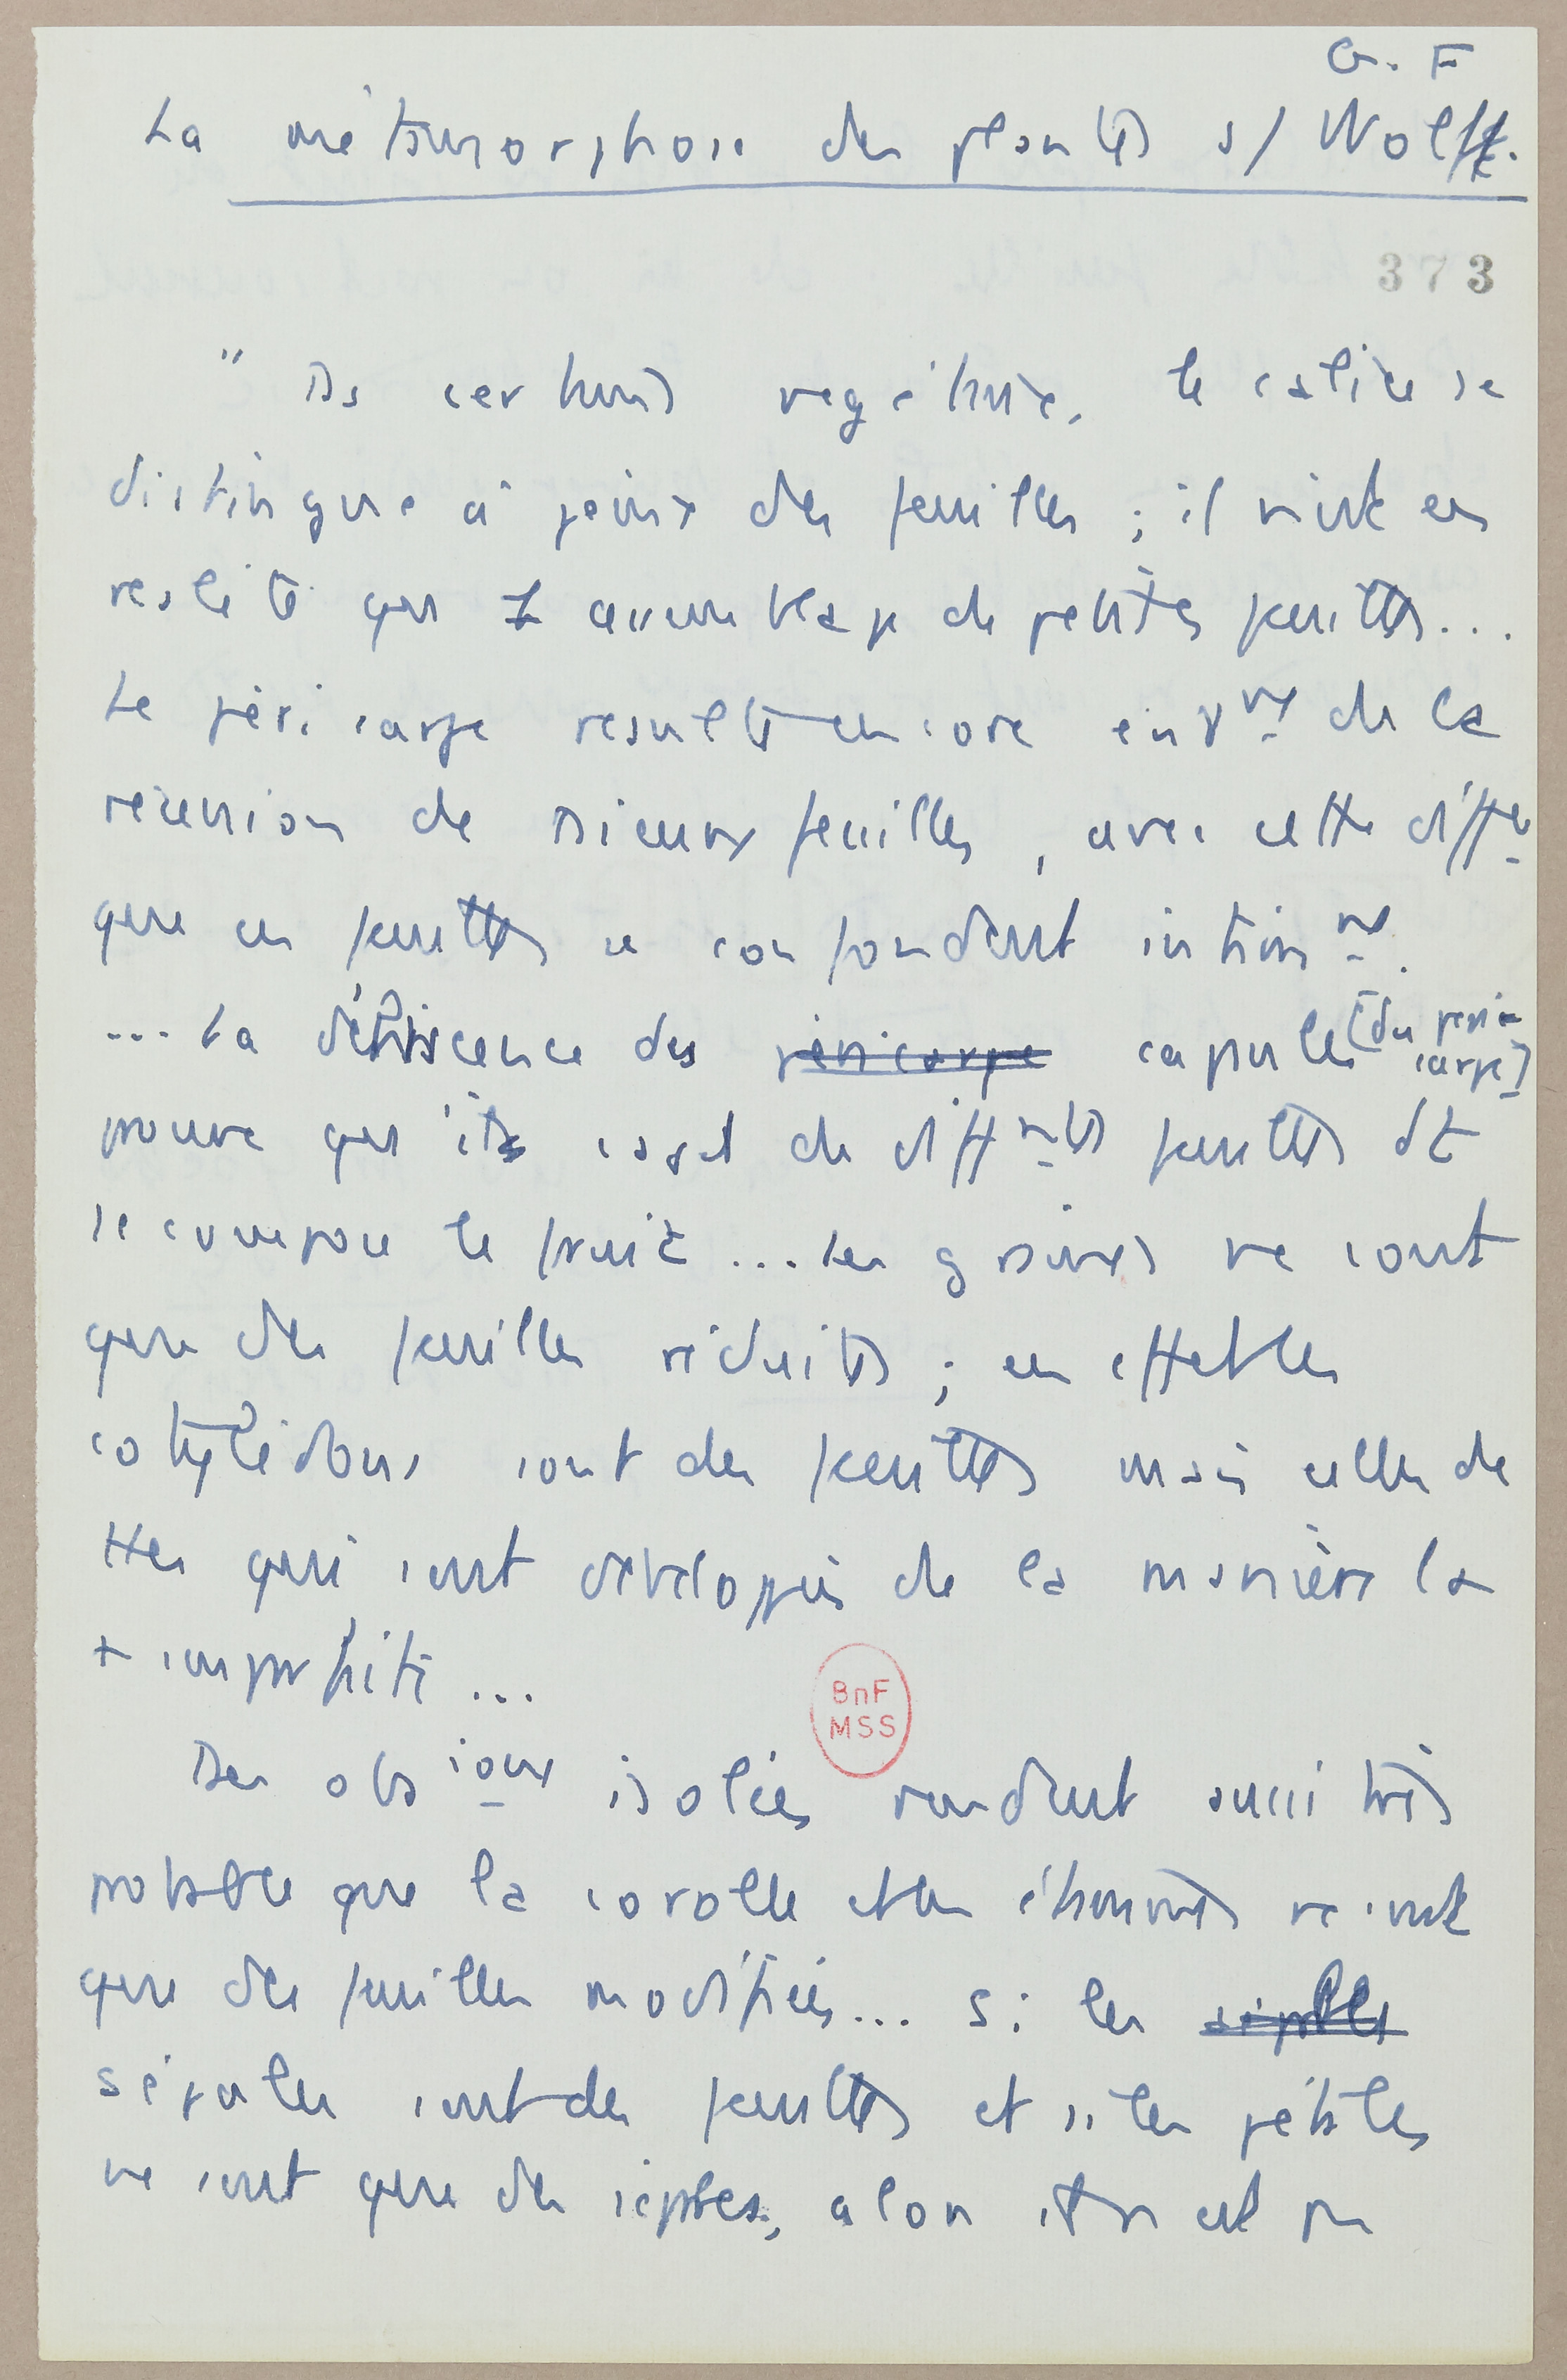 G. F
La métamorphose des plantes s/ Wolff.
373
" Ds certains végétaux, le calice se
distingue à peine des feuilles ; il n'est en
réalité que 1 assemblage de petites feuilles...
Le péricarpe résulte encore évid^mt de la
réunion de plusieurs feuilles, avec cette diff^ce
que ces feuilles se confondent intim^mt.
... La déhiscence des péricarpe capsules (du péri-
carpe)
prouve que de diff^ntes feuilles dt
se compose le fruit ... Les graines ne sont
que des feuilles réduites ; en effet les
cotylédons sont des feuilles mais celles de
ttes qui sont développées de la manière la
+ imparfaite ...
Des obs^ions isolées rendent aussi très
probable que la corolle et les étamines ne sont
que des feuilles modifiées... Si les sépales
sépales sont des feuilles et si les pétales
ne sont que des sépales, alors il n'est pas